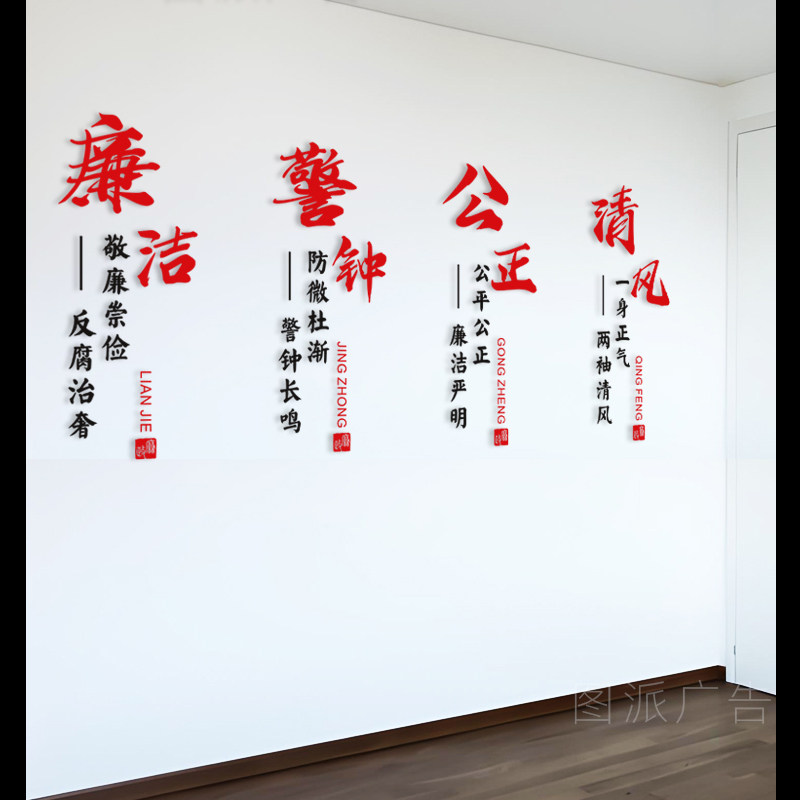 廉洁
敬廉崇俭
反腐治奢
LIAN JIE
警钟
防微杜渐
警钟长鸣
JING ZHONG
公正
公平公正
廉洁严明
GONG ZHENG
清风
一身正气
两袖清风
QING FENG
图派广告